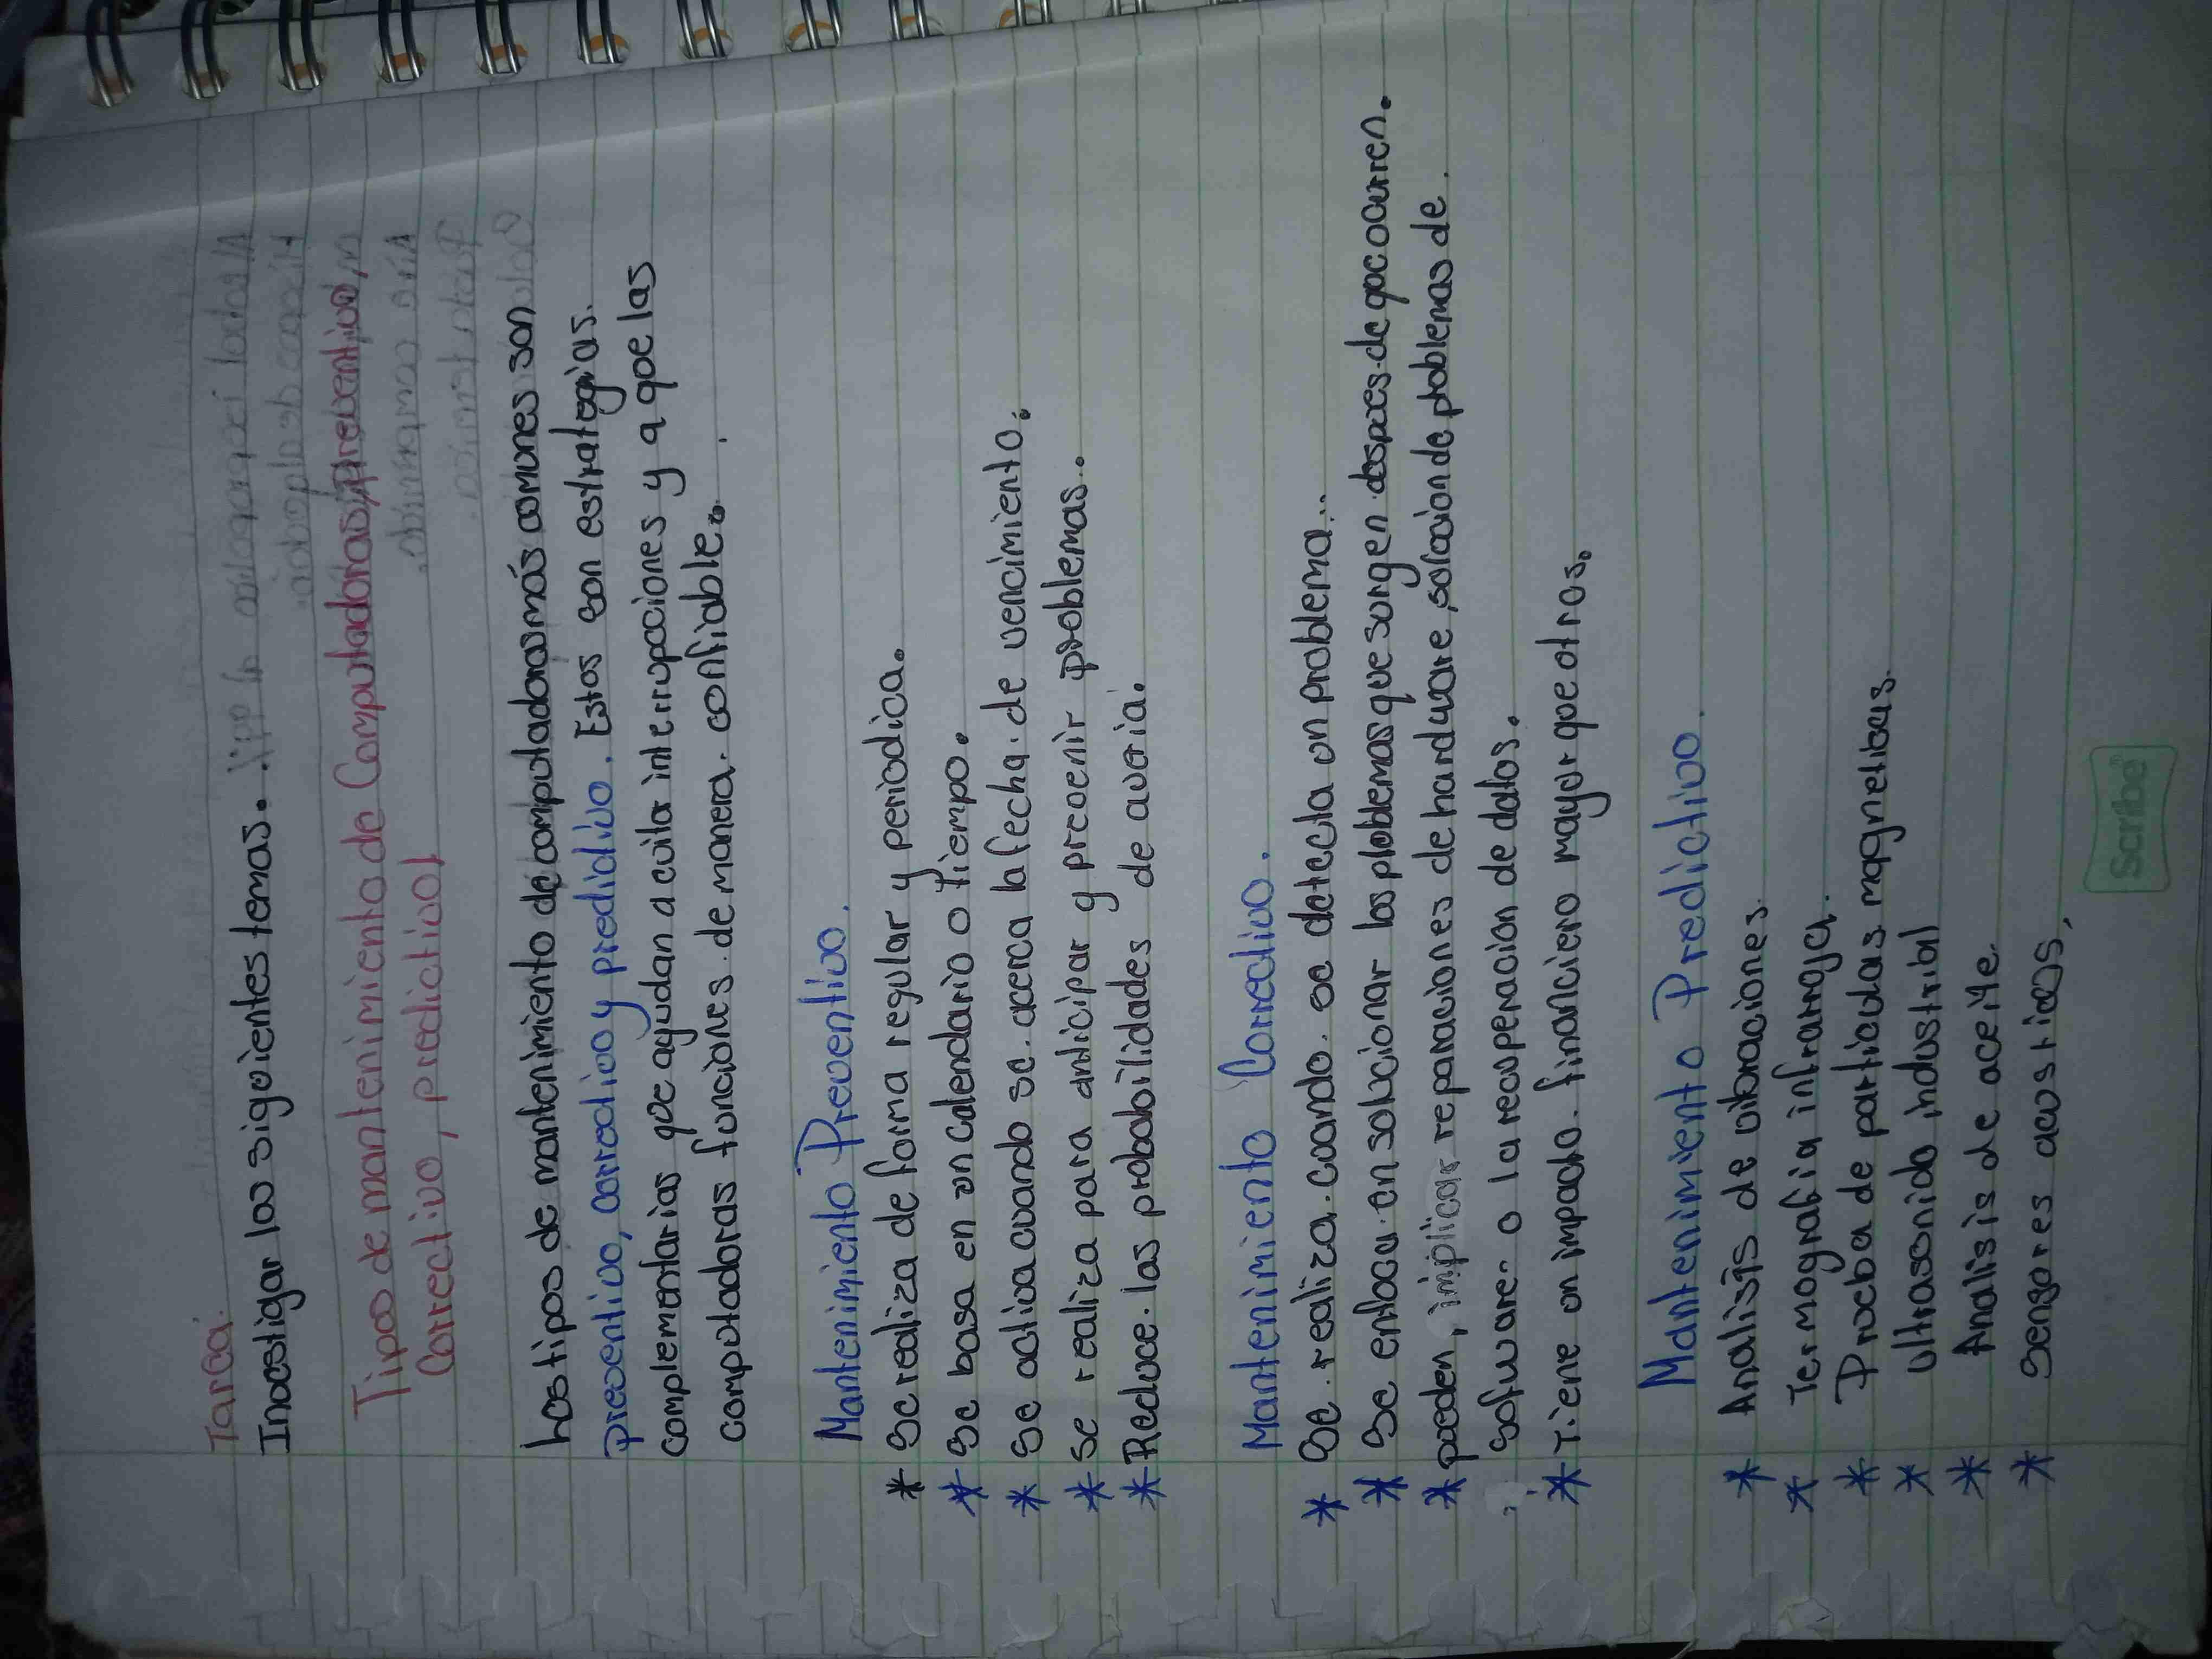 Tarea.
Investigar los siguientes temas.
Tipos de mantenimiento de Computadoras, preventivo,
Correctivo, predictivo
Los tipos de mantenimiento de computadoras más comunes son
preventivo, correctivo y predictivo. Estos son estrategias.
complementarias que ayudan a evitar interrupciones y a que las
computadoras funciones de manera. confiable.
Mantenimiento Preventivo.
* Se realiza de forma regular y periodica.
* Se basa en un Calendario o tiempo.
* Se activa cuando se. acerca la fecha. de vencimiento.
* se realiza para anticipar y prevenir problemas..
* Reduce. las probabilidades de averia.
Mantenimiento Correctivo.
* Se. realiza. cuando. se detecta un problema..
* Se enfoca en solucionar los ploblemas que surgen despues de que ocurren.
* pueden, implicar reparaciones de handware, solucion de ploblemas de
sofware. o la recuperacion de datos.
* Tiene un impacto. financiero mayor que otros.
Mantenimiento Predictivo.
* Analisis de vibraciones.
* Termografia infrarroja.
* Prueba de particulas magneticas.
* ultrasonido industrial
* Analisis de aceite.
* Sensores acusticos,
Scribe®